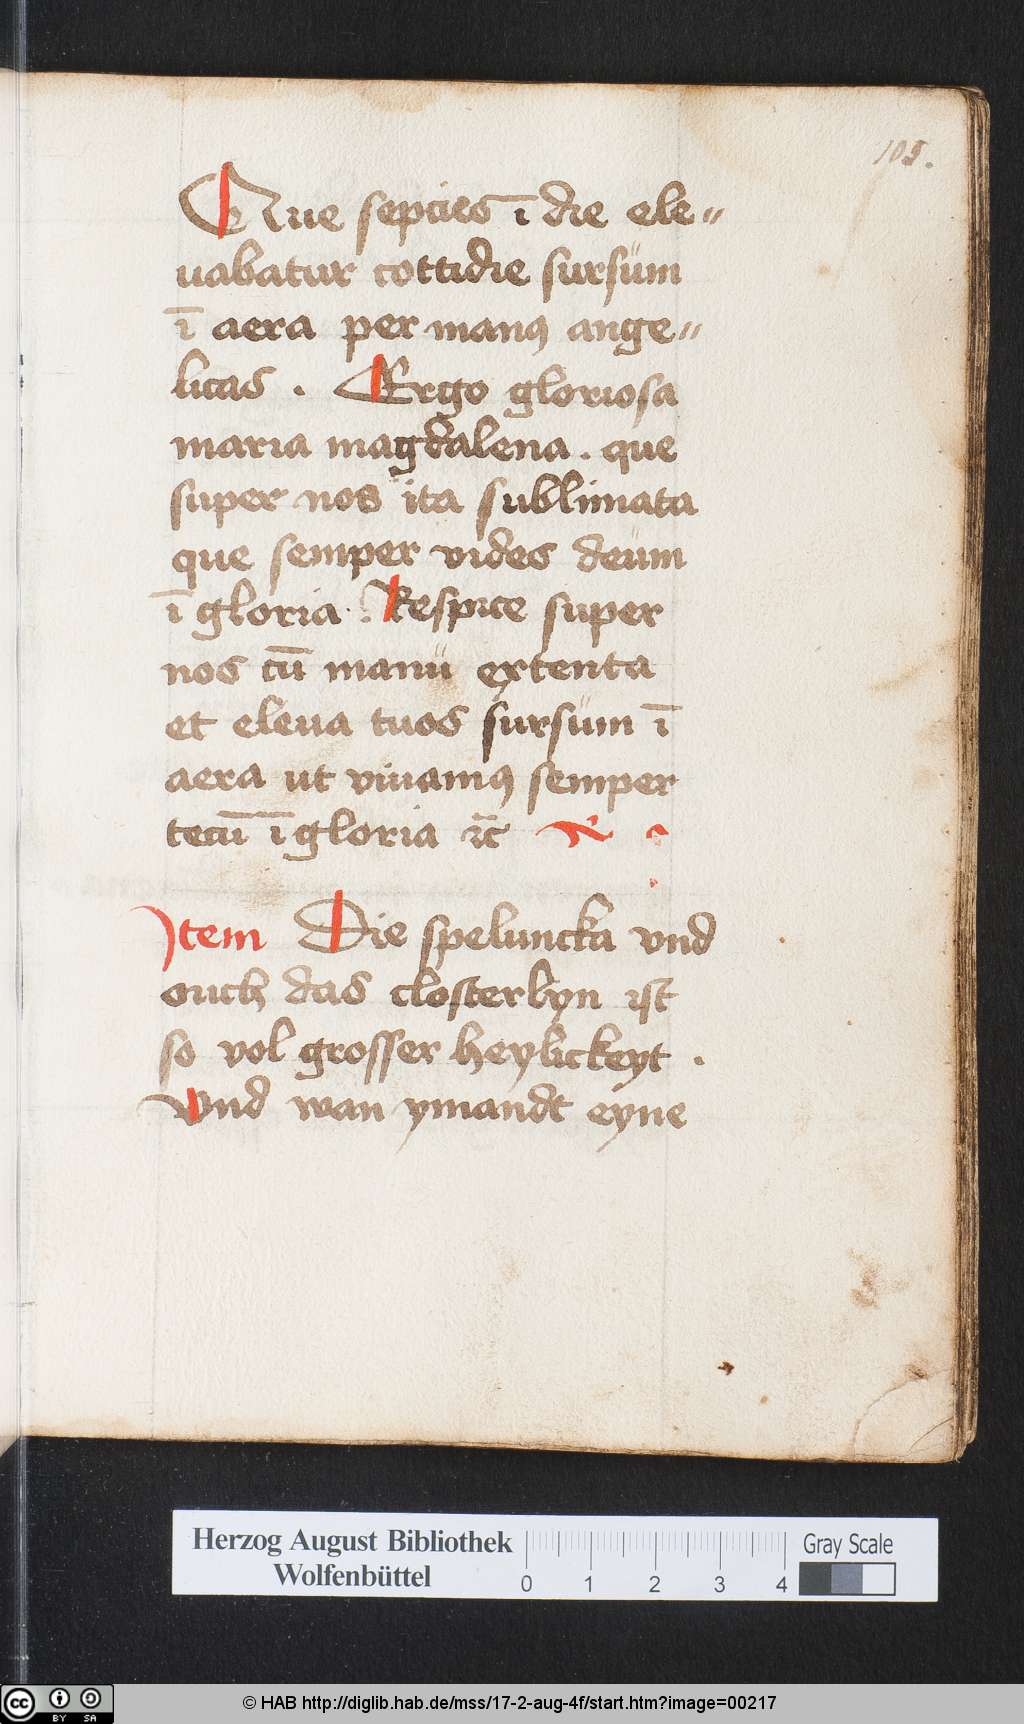 105.
Que sepcies ī die ele〃
uabatur cottidie sursüm
ī aera per manꝯ ange〃
licas . Ergo gloriosa
maria magdalena . que
super nos ita sublimata
que semper vides deüm
ī gloria . Respice super
nos cū manü extenta
et eleua tuos sursüm ī
aera ut viuamꝯ semper
tecū ī gloria ⁊c̄
Jtem Die speluncka vnd
ouch das closterlyn ist
so vol grosser heylickeyt .
Vnd wan ymandt eyne
Herzog August Bibliothek
Wolfenbüttel
0 1 2 3 4
Gray Scale
cc BY SA
© HAB http://diglib.hab.de/mss/17-2-aug-4f/start.htm?image=00217